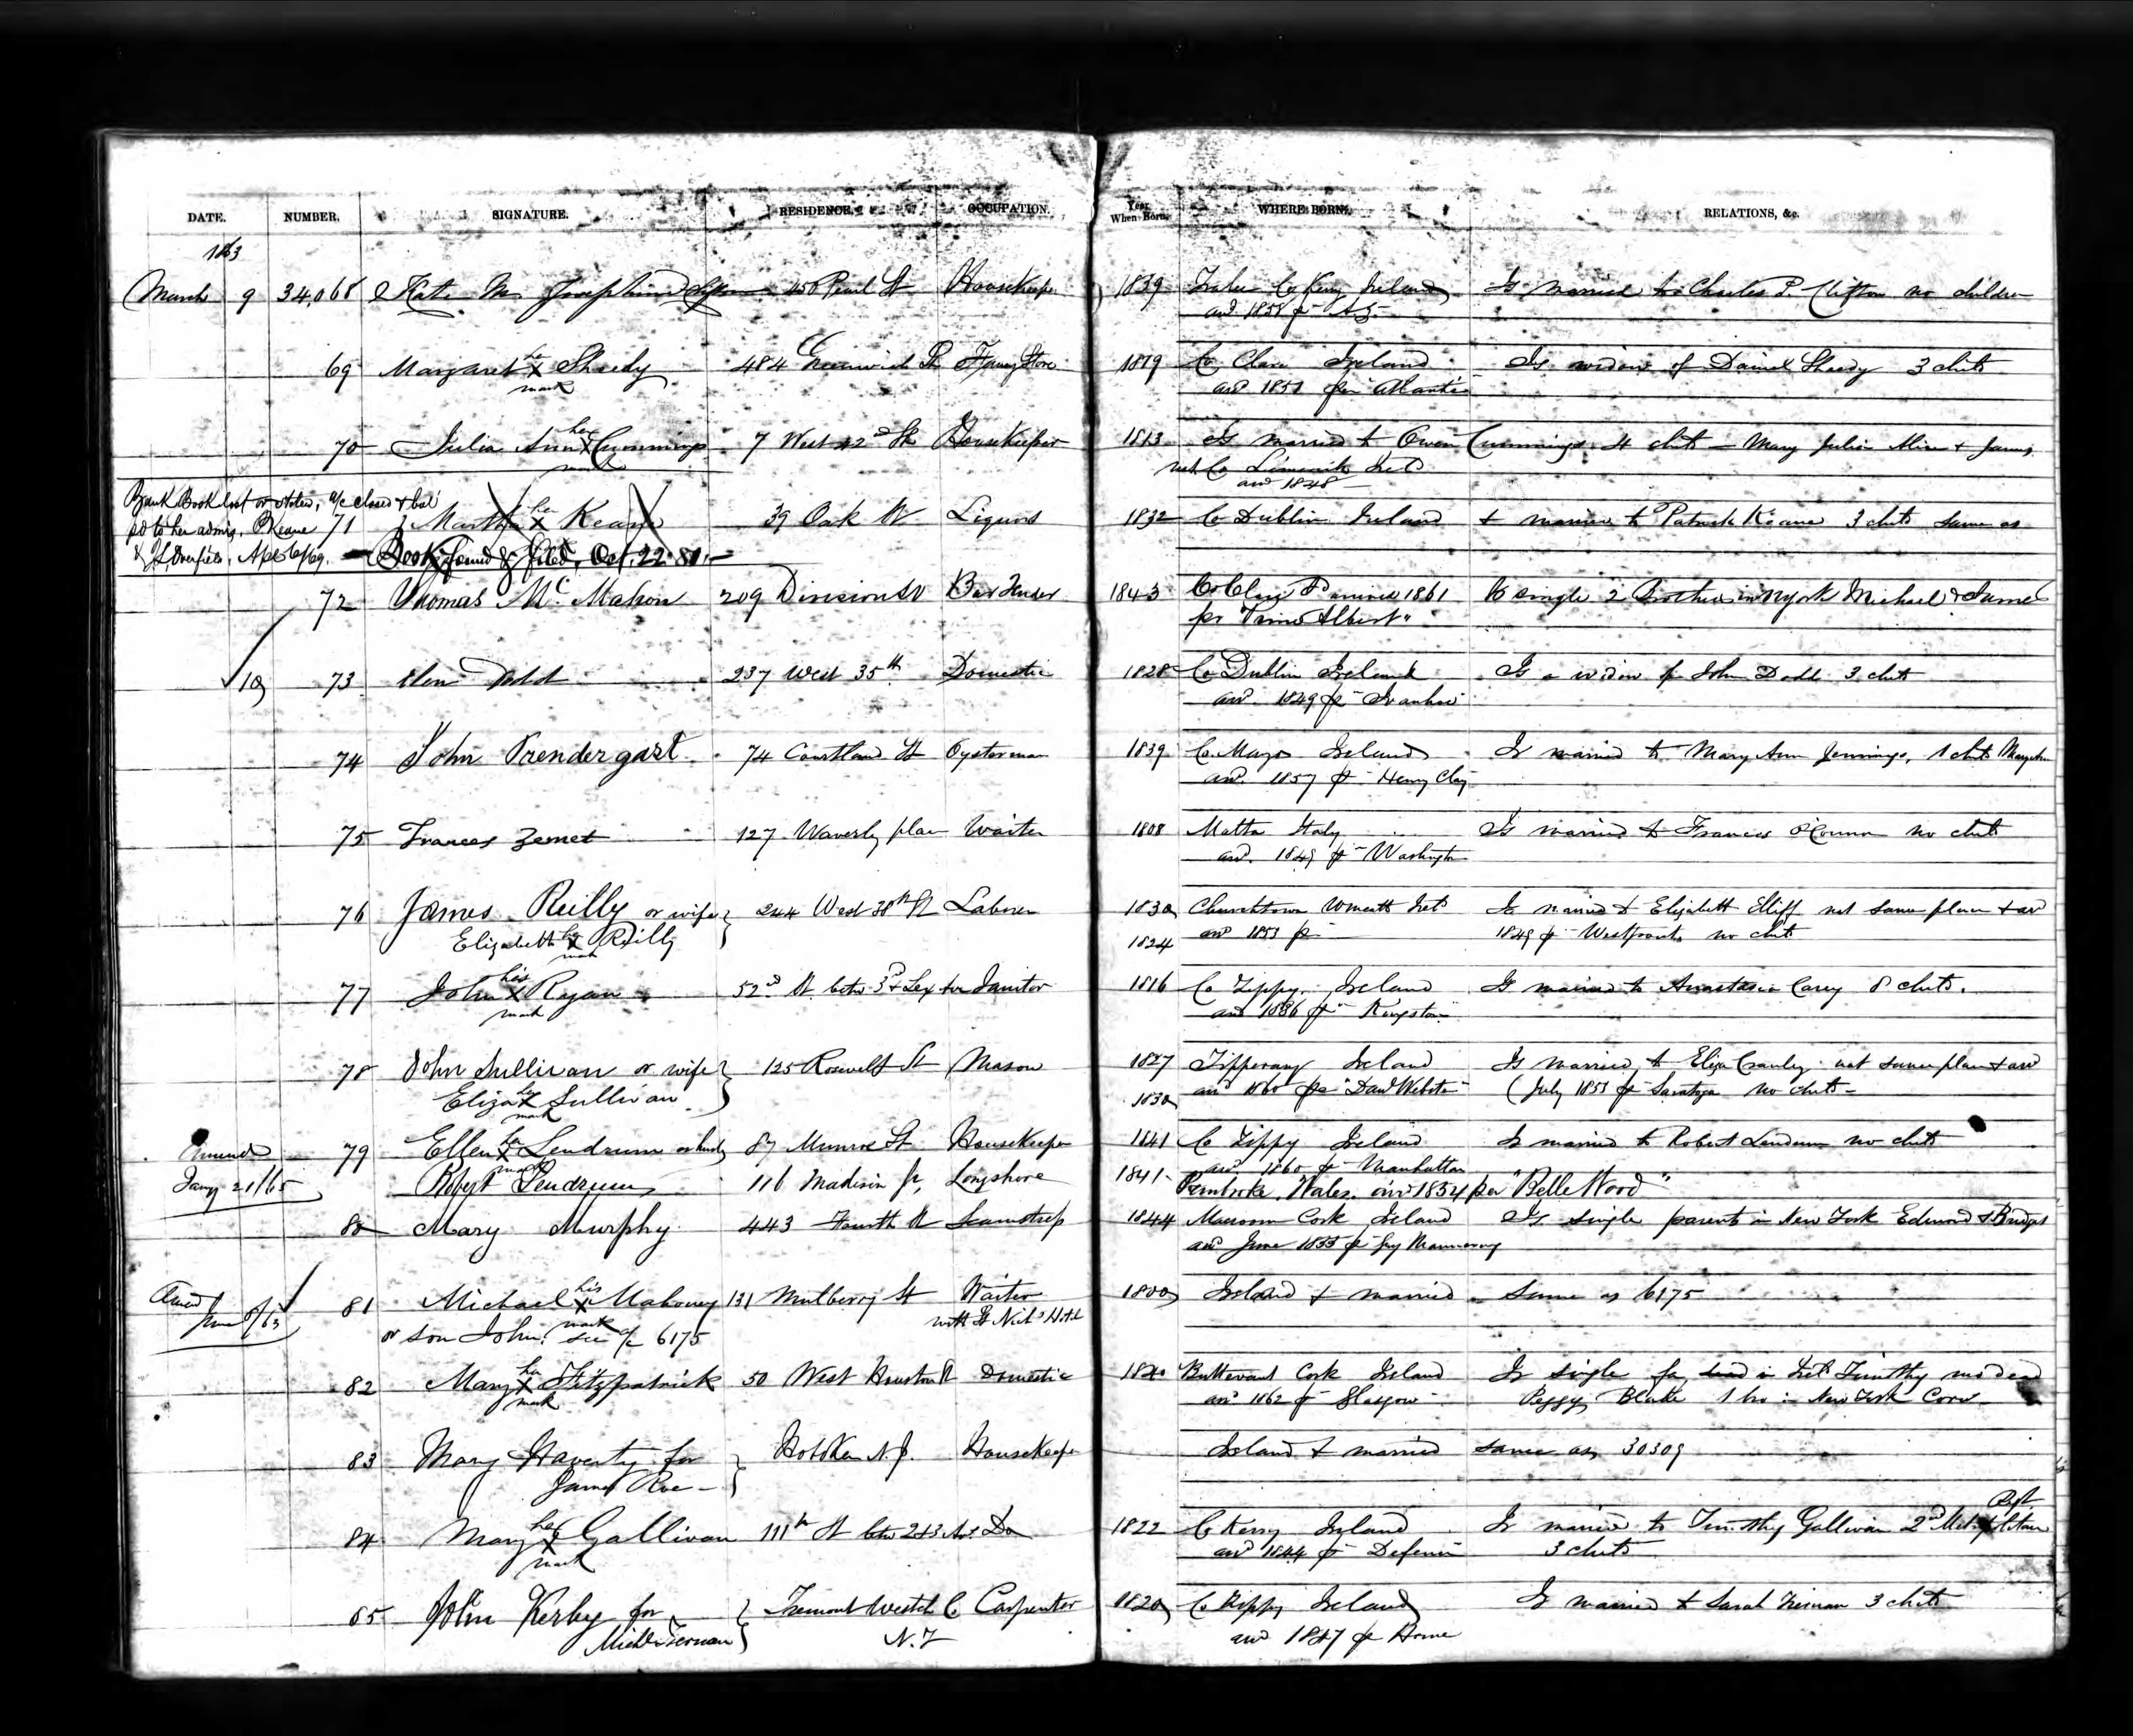 DATE. NUMBER. SIGNATURE. RESIDENCE. OCCUPATION. Year When Born. WHERE BORN. RELATIONS, &c.
1863
March 9 34,068 Kate M Josephine 456 Pearl St Housekeeper 1839 Tralee Co Kerry Ireland Is married to Charles P. Clifton no children
arr 1858 pr
69 Margaret her X mark Sheedy 484 Greenwich St Fancy Store 1819 Co Clare Ireland Is widow of Daniel Sheedy 3 chdn
arr 1851 per Atlantic
70 Julia Ann her X mark Cummings 7 West 42nd St Housekeeper 1813 Is married to Owen Cummings 4 chdn - Mary Julia Alice & James
nat Co Limerick Ireld
arr 1848
Bank Book lost or stolen, a/c closed & bal
pd to her admrs, P Keane 71 Martha her X Keane 39 Oak St Liquors 1832 Co Dublin Ireland & married to Patrick Keane 3 chdn same as
Apl 6/69. - Book found & filed, Oct. 22. 80. -
72 Thomas Mc Mahon 209 Division St Bar Tender 1843 Co Clare arrived 1861 Is single 2 Brothers in NYork Michael & James
pr "Prince Albert"
10 73 Ellen Dodd 237 West 35th Domestic 1828 Co Dublin Ireland Is a widow of John Dodd 3 chdn
arr. 1849 pr Ivanhoe
74 John Prendergast 74 Courtland St Oysterman 1839 Co Mayo Ireland Is married to Mary Ann Jennings, 1 chdn Mary Ann
arr. 1857 pr Henry Clay
75 Frances Zemet 127 Waverly place Waiter 1808 Malta Italy Is married to Frances O'Connor no chdn
arr. 1849 pr Washington
76 James Reilly or wife } 244 West 38th St Laborer 1830 Churchtown Wmeath Ireld Is married to Elizabeth Iliff nat same place & arr
Elizabeth her X mark Reilly 1824 arr 1851 pr 1849 pr Westpoint no chdn
77 John his X mark Ryan 52nd St betw 3d & Lex Av Janitor 1816 Co Tippy. Ireland Is married to Anastasia Carey 8 chdn.
arr 1836 pr Kingston
78 John Sullivan or wife } 125 Rosevelt St Mason 1827 Tipperary Ireland Is married to Eliza Cranley nat same place & arr
Eliza her X mark Sullivan 1830 arr 1860 pr "Danl Webster" (July 1851 pr Saratoga no chdn -
Amend 79 Ellen her X mark Lendrum or husb 87 Munroe St Housekeeper 1841 Co Tippy Ireland Is married to Robert Lendrum no chdn
arr. 1860 pr Manhattan
Jany 21/65 Robert Lendrum 116 Madison St, Longshore 1841 - Pembroke, Wales. arr 1854 per "Belle Wood"
80 Mary Murphy 443 Fourth St Seamstress 1844 Macroom Cork Ireland Is single parents in New York Edmond & Bridget
arr June 1855 pr Guy Mannering
Amend June 8/63 81 Michael his X mark Mahoney 131 Mulberry St Waiter 1800 Ireland & married same as 6175
or son John. see a/c 6175 with St Nichs Hotel
82 Mary her X mark Fitzpatrick 50 West Houston St Domestic 1840 Buttevant Cork Ireland Is single fa in Ireld Timothy mo dead
arr 1862 pr Glasgow Peggy Blake 1 bro in New York Corns
83 Mary Haverty for } Hoboken N.J. Housekeeper Ireland & married same as 30309
James Roe -
84 Mary her X mark Gallivan 111th St betw 2 & 3 Avs Do 1822 Co Kerry Ireland Is married to Timothy Gallivan 2nd Metropolitan Regt
arr 1844 pr Defence 3 chdn
85 John Kerby for } Tremont Westch Co Carpenter 1820 Co Tippy Ireland Is married to Sarah Tiernan 3 chdn
Michl Tiernan N.Y arr 1847 pr Rome